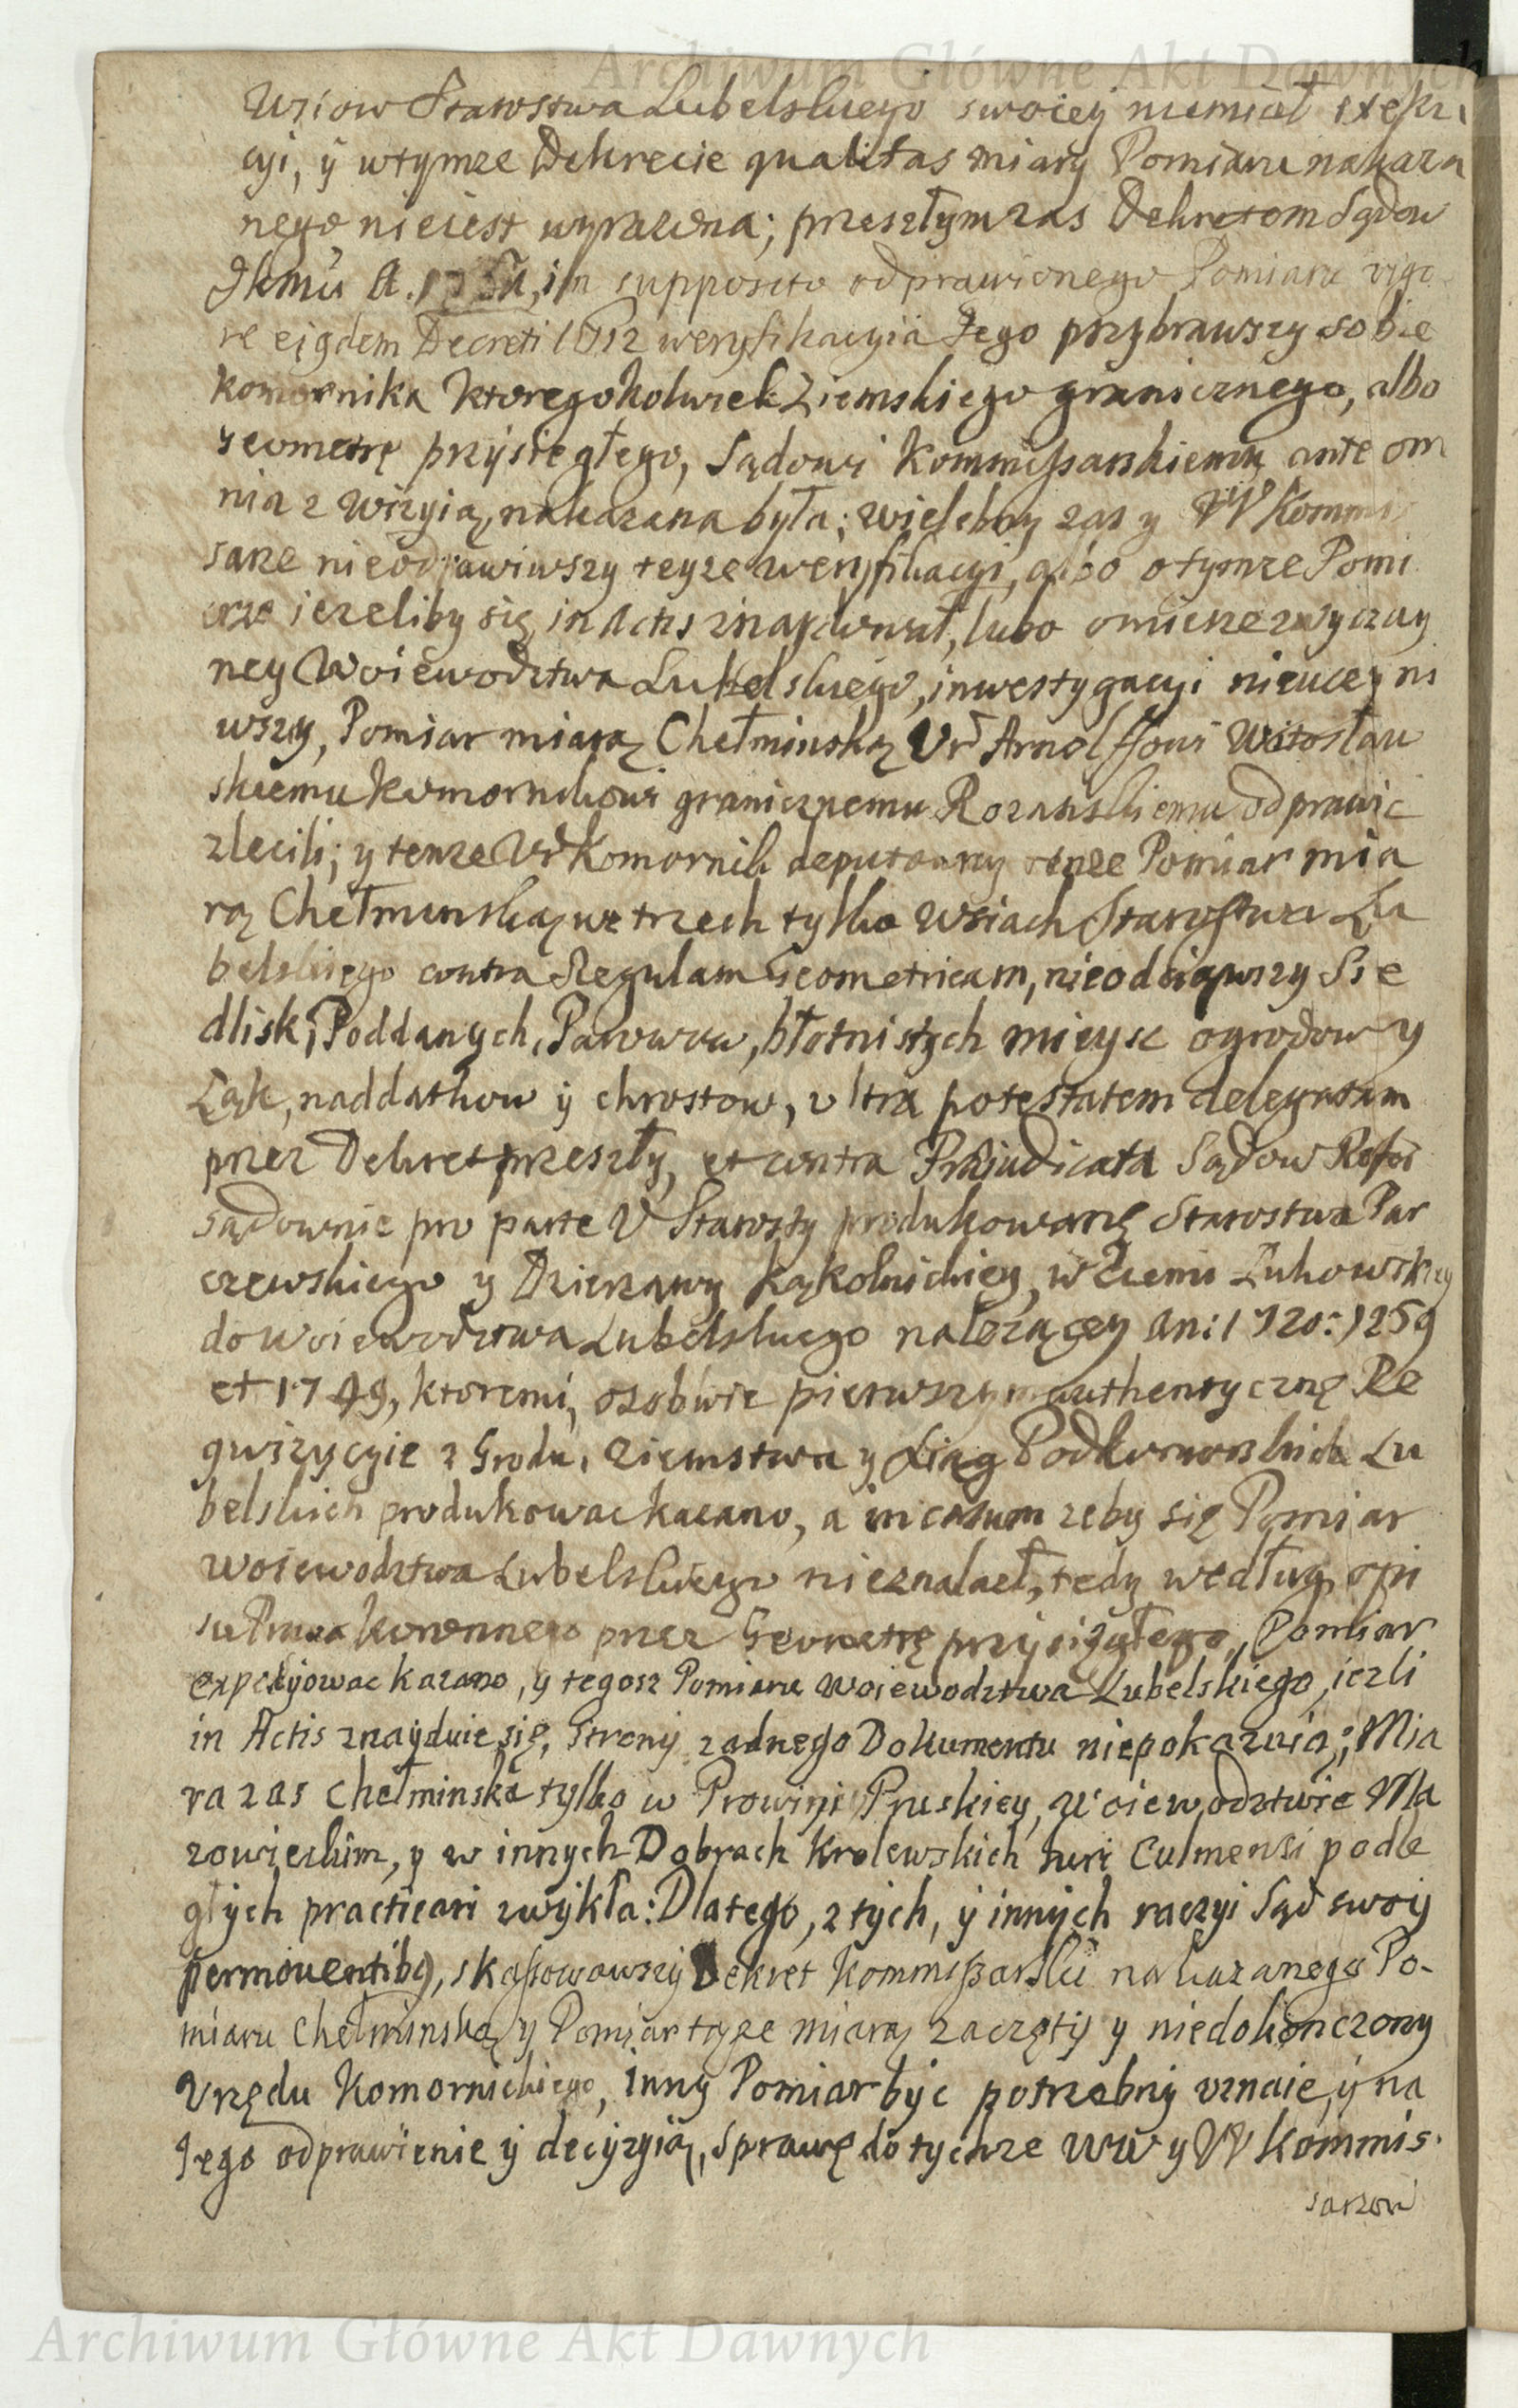 Archiwum Główne Akt Dawnych
Wsiow Starostwa Lubelskiego swoiey niemiał exeku
cyi, ÿ wtymze Dekrecie qualitas miary Pomiaru nakaza
nego nieiest wyrazona; przeszłym zas Dekretom Sądow
Jkmci A. in supposito odprawionego Pomiaru vigo
re ejsdem Decreti 1712 weryfikacyia tego przybrawszy sobie
komornika ktoregokolwiek Ziemskiego granicznego, albo
Geometrę przysięgłego, Sądowi Kommissarskiemu ante om
nia z wizyią, nakazana była; wielebny zas y W Kommis
sarze nieodprawiwszy teyze weryfikacyi, albo otymze Pomi
arze iezeliby się in Actis znaydował, lubo omierze zwyczay
ney Woiewodztwa Lubelskiego, inwestygacyi nieuczyni
wszy, Pomiar miarą Chełminską Ur Arnolffowi Witosław
skiemu Komornikowi granicznemu Rozanskiemu odprawic
zlecili; y tenze Ur Komornik deputowany tenze Pomiar mia
rą Chełminską we trzech tylko wsiach Starostwa Lu
belskiego contra Regulam Geometricam, nieodciąwszy Sie
dlisk, Poddanych, Parowow, błotnistych mieysc ogrodow y
Łąk, naddatkow ÿ chrostow, ultra potestatem delegatam
przez Dekret przeszły, et contra Præjudicata Sądow Refer
sądownie pro parte U Starosty produkowane Starostwa Par
czewskiego y Dzierzawy Kąkolnickiey, w Ziemi Łukowskiey
do Woiewodztwa Lubelskiego nalezącey An: 1720: 1259
et 1749, ktoremi, osobwie pierwszym authentyczne Re
quizycyie z Grodu, Ziemstwa y Xiąg Podkomorskich Lu
belskich produkowac kazano, a in casum zeby się Pomiar
Woiewodztwa Lubelskiego nieznalazł, tedy według opi
su Prawa koronnego przez Geometrę przysięgłego, Pomiar
expedyiowac kazano, y tegosz Pomiaru Woiewodztwa Lubelskiego, iezli
in Actis znayduie się, Strony zadnego Dokumentu niepokazuią; Mia
ra zas Chełminska tylko w Prowinji Pruskiey, Woiewodztwie Ma
zowieckim, y w innych Dobrach Krolewskich Iuri Culmensi podle
głych practicari zwykła: Dlatego, z tych, ÿ innych racyi Sąd swoy
permoventibq, skassowawszy Dekret Kommissarski nakazanego Po-
miaru Chełminską y Pomiar teyze miarą zaczęty y niedokonczony
Urzędu Komornickiego, inny Pomiar byc potrzebny uznaie, ÿ na
Jego odprawienie ÿ decyzyią, sprawę do tychze WW y W Kommis-
sarzow
Archiwum Główne Akt Dawnych